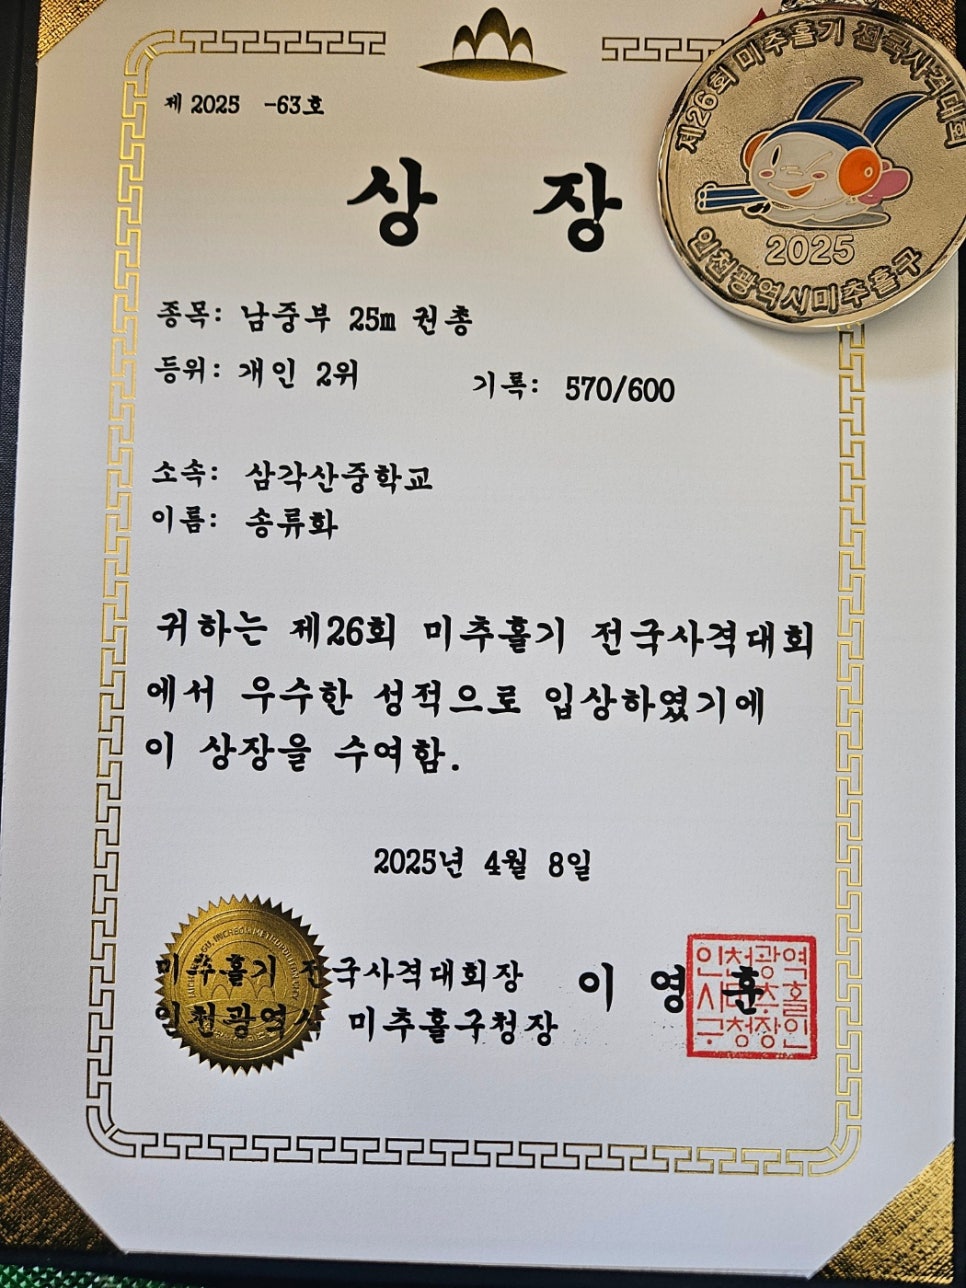 제 2025 -63호
제26회 미추홀기 전국사격대회
2025
인천광역시미추홀구
상 장
종목: 남중부 25m 권총
등위: 개인 2위 기록: 570/600
소속: 삼각산중학교
이름: 송류화
귀하는 제26회 미추홀기 전국사격대회
에서 우수한 성적으로 입상하였기에
이 상장을 수여함.
2025년 4월 8일
미추홀기 전국사격대회장 이 영 훈
인천광역시 미추홀구청장
인천광역
시미추홀
구청장인